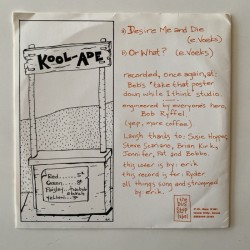 KOOL-APE
Red
Green
Paisley
yellow
erik.
a) Desire Me and Die
(e. Voeks)
b) Or What? (e. Voeks)
recorded, once again, at:
Bob's "take that poster
down while I think" studio.
engineered by everyone's hero,
Bob Ryffel
(yep, more coffee)
Laugh thanks to: Susie Hopper,
Steve Scariano, Brian Kirk,
Jennifer, Pat and Bekho.
this cover is by erik
this record is for: Ryder
all things sung and strummed
by erik.